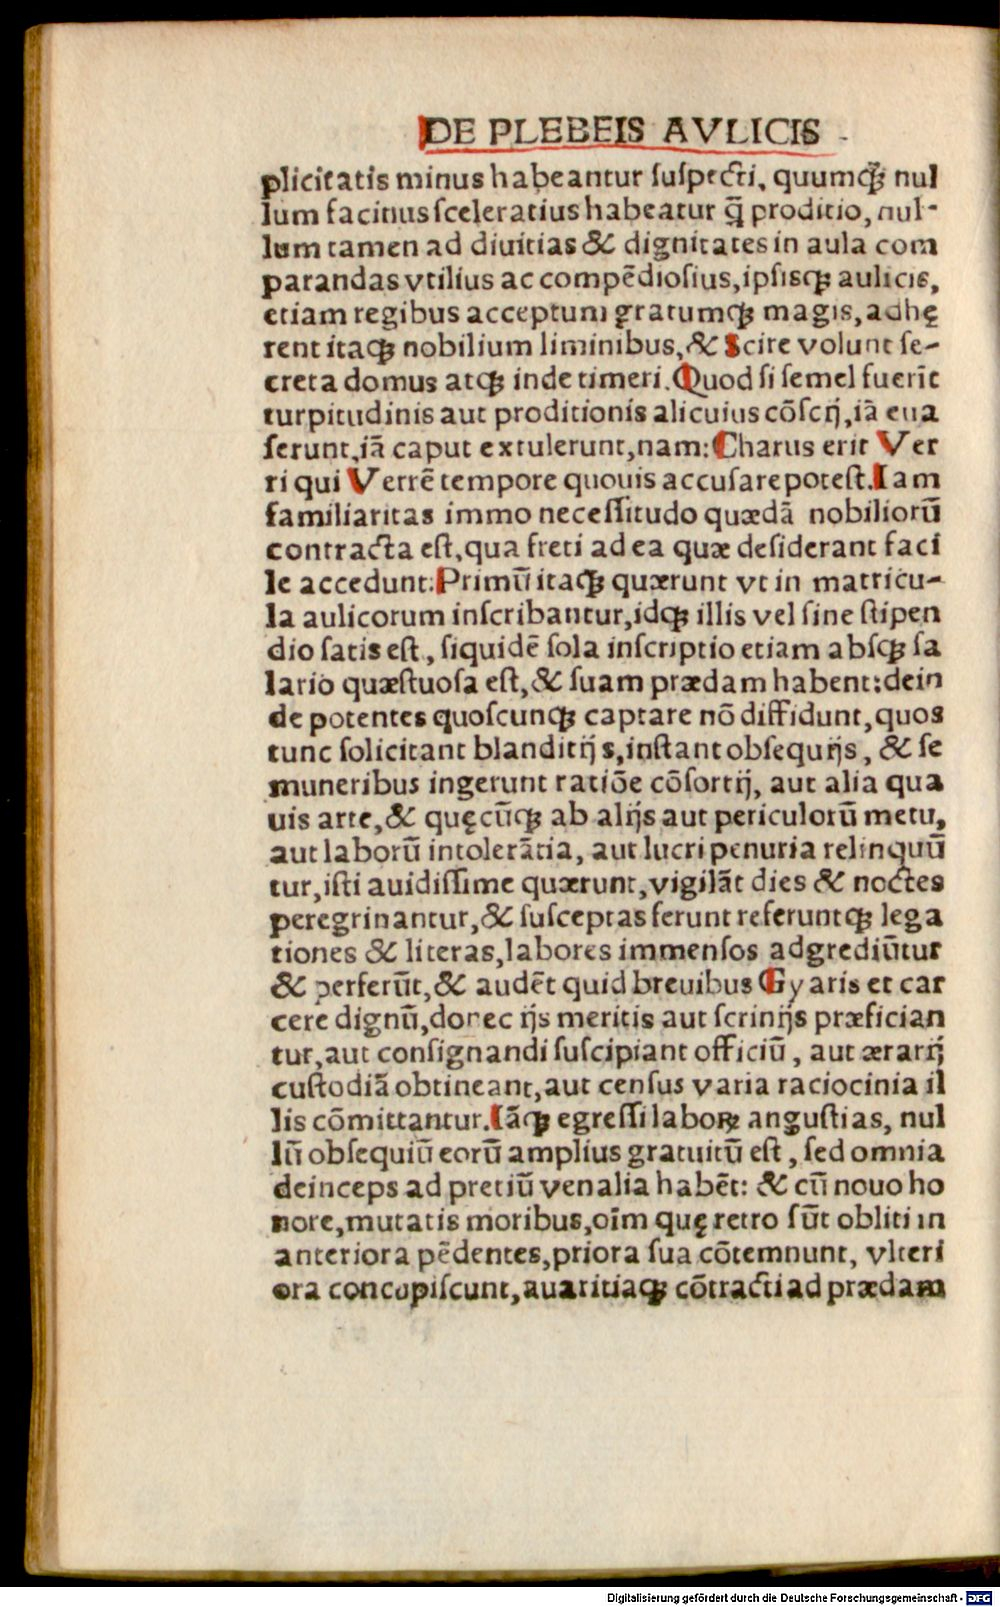 DE PLEBEIS AVLICIS
plicitatis minus habeantur ſuſpecti, quumqꝫ nul
lum facinus ſceleratius habeatur q̄ proditio, nul-
lum tamen ad diuitias & dignitates in aula com
parandas vtilius ac compēdioſius, ipſisqꝫ aulicis,
etiam regibus acceptum gratumqꝫ magis, adhę
rent itaqꝫ nobilium liminibus, & Scire volunt ſe-
creta domus atqꝫ inde timeri. Quod ſi ſemel fuerīt
turpitudinis aut proditionis alicuius cōſcij, iā eua
ſerunt, iā caput extulerunt, nam: Charus erit Ver
ri qui Verrē tempore quouis accuſare poteſt. Iam
familiaritas immo neceſſitudo quædā nobiliorū
contracta eſt, qua freti ad ea quæ deſiderant faci
le accedunt: Primū itaqꝫ quærunt vt in matricu-
la aulicorum inſcribantur, idqꝫ illis vel ſine ſtipen
dio ſatis eſt, ſiquidē ſola inſcriptio etiam abſqꝫ ſa
lario quæſtuoſa eſt, & ſuam prædam habent: dein
de potentes quoſcunqꝫ captare nō diffidunt, quos
tunc ſolicitant blanditijs, inſtant obſequijs, & ſe
muneribus ingerunt ratiōe cōſortij, aut alia qua
uis arte, & quęcūqꝫ ab alijs aut periculorū metu,
aut laborū intolerātia, aut lucri penuria relinquū
tur, iſti auidiſſime quærunt, vigilāt dies & noctes
peregrinantur, & ſuſceptas ferunt referuntqꝫ lega
tiones & literas, labores immenſos adgrediūtur
& perferūt, & audēt quid breuibus Gyaris et car
cere dignū, donec ijs meritis aut ſcrinijs præfician
tur, aut conſignandi ſuſcipiant officiū, aut ærarij
cuſtodiā obtineant, aut cenſus varia raciocinia il
lis cōmittantur. Iāqꝫ egreſſi laboꝝ anguſtias, nul
lū obſequiū eorū amplius gratuitū eſt, ſed omnia
deinceps ad pretiū venalia habēt: & cū nouo ho
nore, mutatis moribus, oīm quę retro ſūt obliti in
anteriora pēdentes, priora ſua cōtemnunt, vlteri
ora concupiſcunt, auaritiaqꝫ cōtracti ad prædam
Digitalisierung gefördert durch die Deutsche Forschungsgemeinschaft - DFG